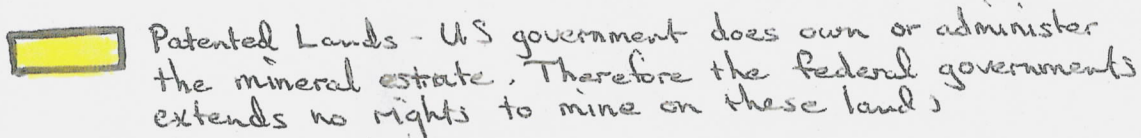 Patented Lands - US government does own or administer
the mineral estate. Therefore the federal governments
extends no rights to mine on these lands